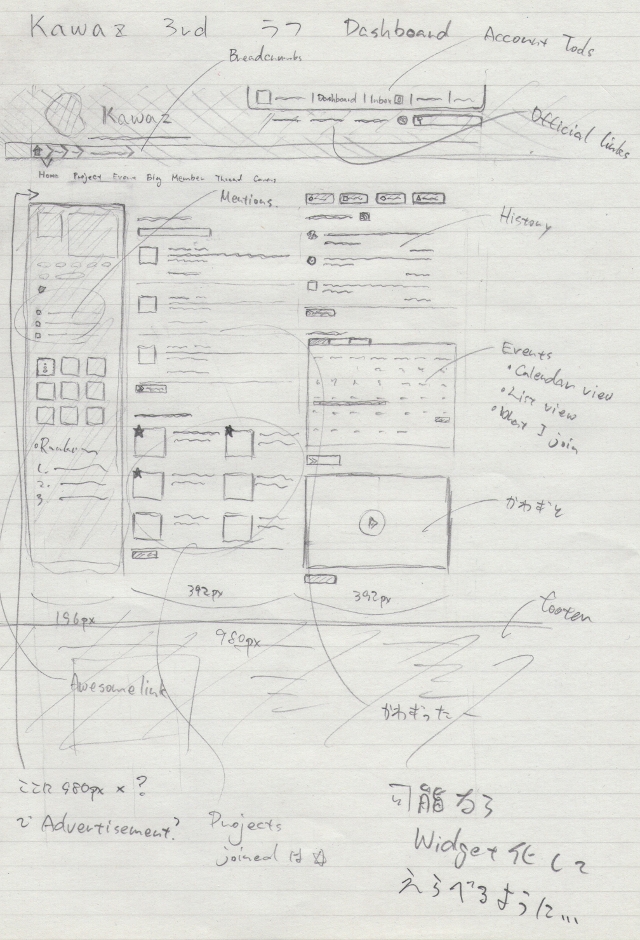 Kawaz 3rd ラフ Dashboard
Account Tools
Breadcrumbs
Dashboard | Inbox
Kawaz
Official links
Home Project Event Blog Member Thread
Mentions
History
Events
・Calendar view
・List view
I join
・Ranker
1.
2.
3
かわずと
196px
392px
392px
980px
Footer
Awesome link
かわずったー
ここに 980px × ?
で Advertisement?
Projects
joined は ☆
可能なら
Widget化して
えらべるように...